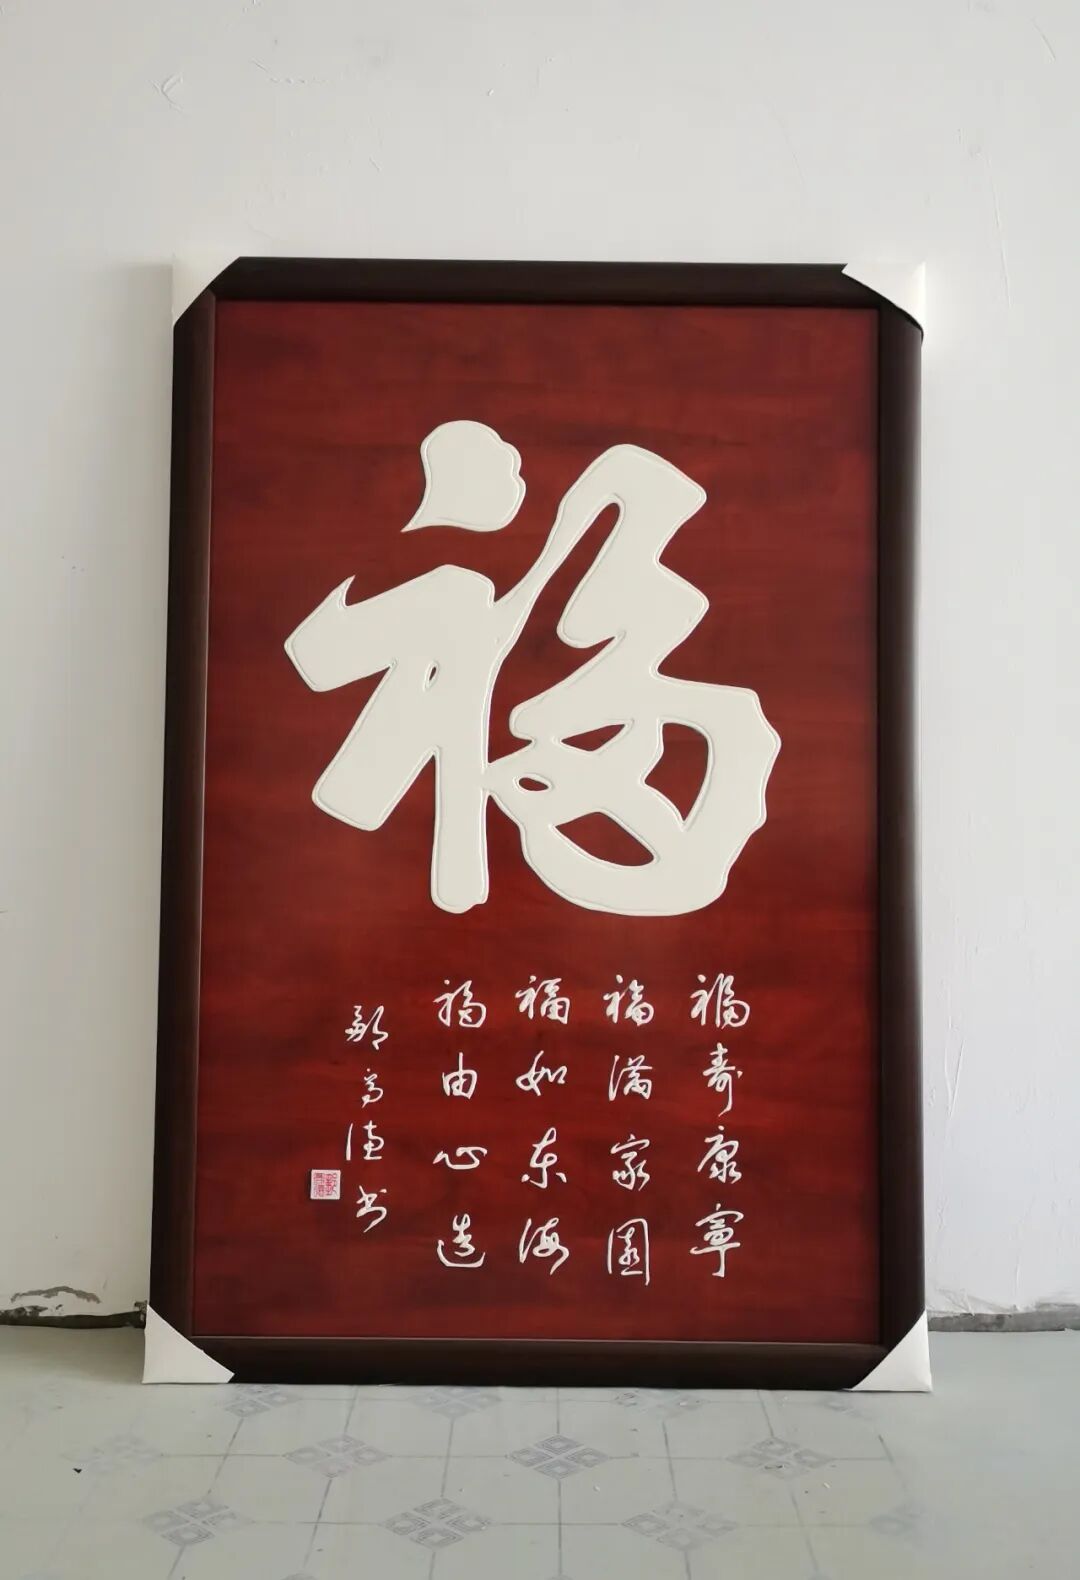 福
福寿康宁
福满家园
福如东海
福由心造
郭高德书